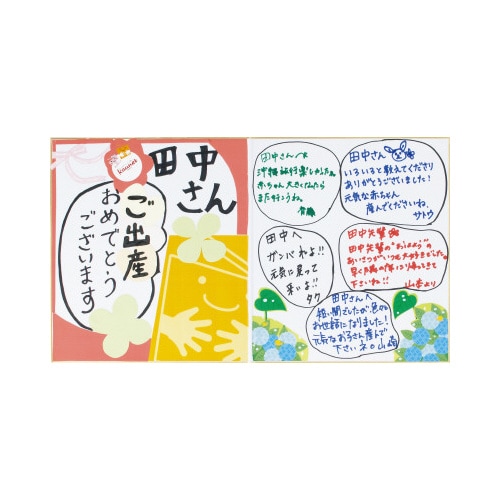 田中
さん
ご出産
おめでとう
ございます
田中さんへ
沖縄旅行楽しかったね
赤ちゃん大きくなったら
また行こうね。
田中さん
いろいろと教えてくださり
ありがとうございました!
元気な赤ちゃん
産んでくださいね。
サトウ
田中へ
ガンバレよ!!
元気に戻って
来いよ!!
タク
田中先輩
田中先輩の"おはよう"の
あいさつがいつも大好きでした。
早く
下さいね!!
山本より
田中さんへ
短い間でしたが、色々
お世話になりました!
元気なお子さん産んで
下さいネ